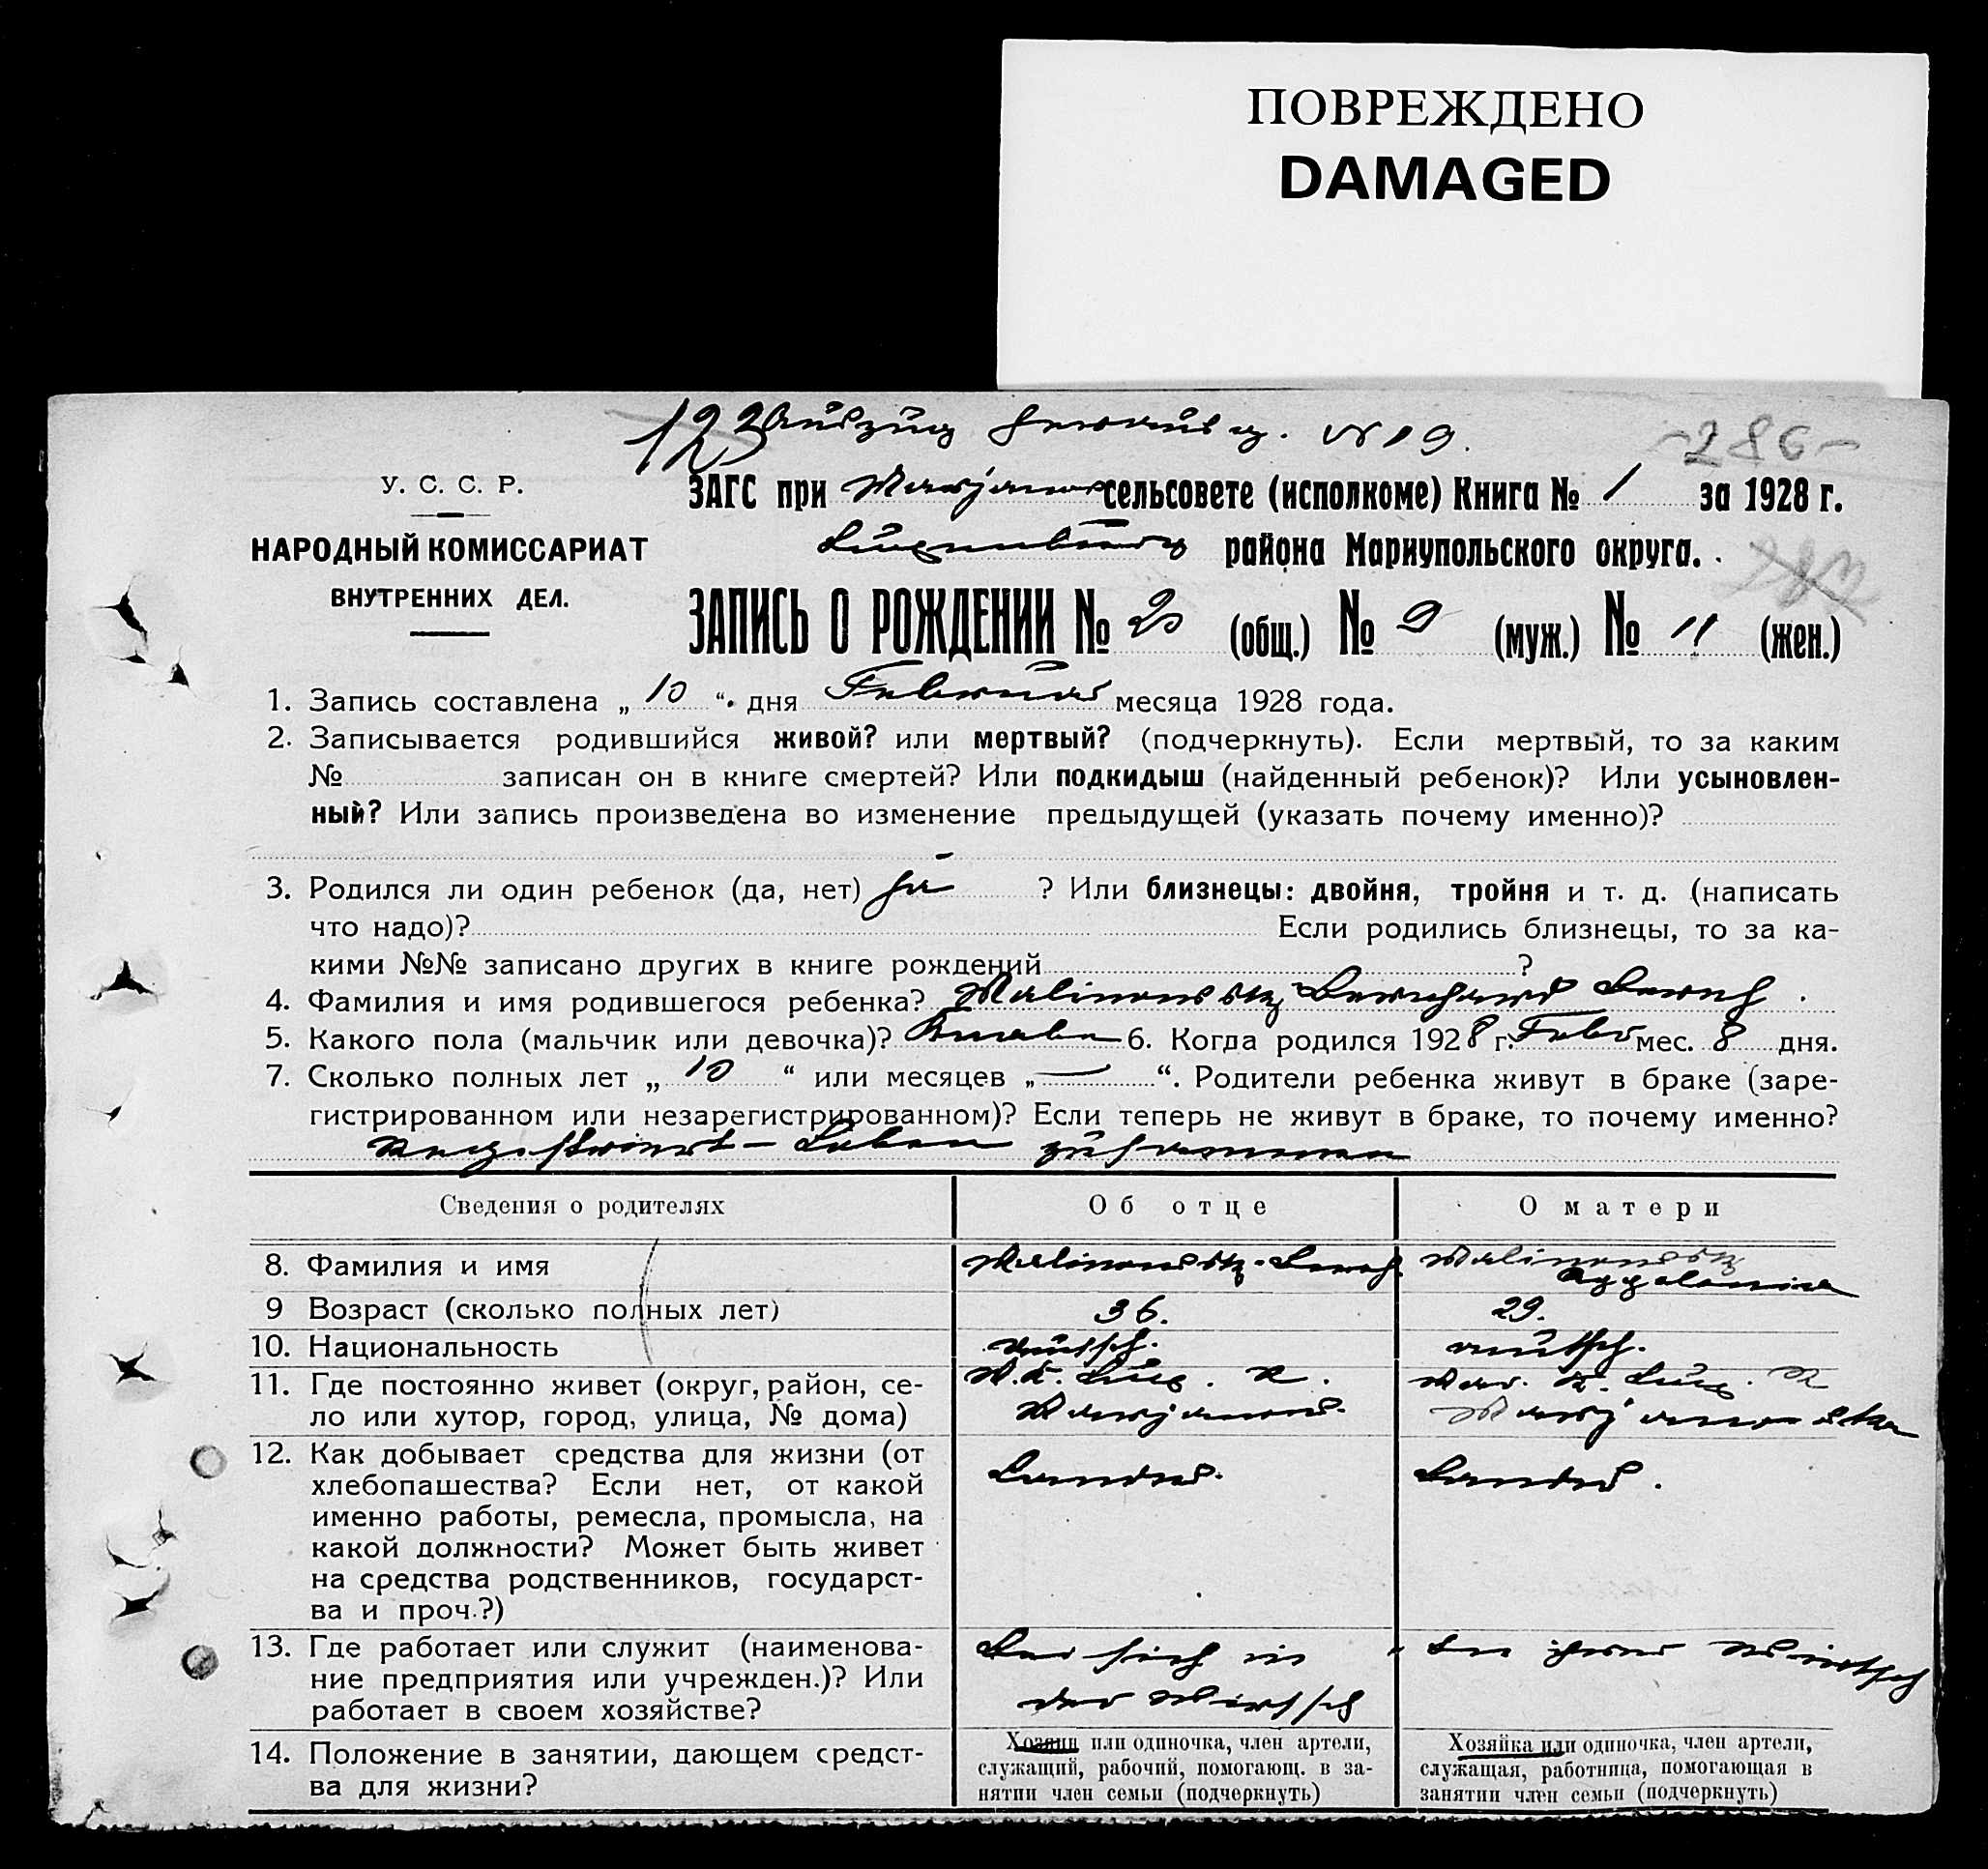 ПОВРЕЖДЕНО
DAMAGED
123 Auszug herausg. № 9.
-286-
У. С. С. Р.
ЗАГС при Marjanow сельсовете (исполкоме) Книга № 1 за 1928 г.
НАРОДНЫЙ КОМИССАРИАТ
района Мариупольского округа.
ВНУТРЕННИХ ДЕЛ.
ЗАПИСЬ О РОЖДЕНИИ № 20 (общ.) № 9 (муж.) № 11 (жен.)
1. Запись составлена „ 10 “ дня Februar месяца 1928 года.
2. Записывается родившийся живой? или мертвый? (подчеркнуть). Если мертвый, то за каким
№ записан он в книге смертей? Или подкидыш (найденный ребенок)? Или усыновлен-
ный? Или запись произведена во изменение предыдущей (указать почему именно)?
3. Родился ли один ребенок (да, нет) ja ? Или близнецы: двойня, тройня и т. д. (написать
что надо)? Если родились близнецы, то за ка-
кими №№ записано других в книге рождений ?
4. Фамилия и имя родившегося ребенка? Malinowsky Bernhard
5. Какого пола (мальчик или девочка)? Knabe 6. Когда родился 1928 г. Febr мес. 8 дня.
7. Сколько полных лет „ 10 “ или месяцев „ — “. Родители ребенка живут в браке (заре-
гистрированном или незарегистрированном)? Если теперь не живут в браке, то почему именно?
Registriert - Leben zusammen
Сведения о родителях Об отце О матери
8. Фамилия и имя Malinowsky Malinowsky
Appolonia
9 Возраст (сколько полных лет) 36. 29.
10. Национальность deutsch. deutsch.
11. Где постоянно живет (округ, район, се- M. K. Lux. R. Mar. K. Lux. R
ло или хутор, город, улица, № дома) Marjanow.
12. Как добывает средства для жизни (от Landw. Landw.
хлебопашества? Если нет, от какой
именно работы, ремесла, промысла, на
какой должности? Может быть живет
на средства родственников, государст-
ва и проч.?)
13. Где работает или служит (наименова- Bei sich in In ihrer Wirtsch
ние предприятия или учрежден.)? Или
работает в своем хозяйстве? der Wirtsch
14. Положение в занятии, дающем средст-
ва для жизни?
Хозяин или одиночка, член артели,
служащий, рабочий, помогающ. в за-
нятии член семьи (подчеркнуть)
Хозяйка или одиночка, член артели,
служащая, работница, помогающая в
занятии член семьи (подчеркнуть)